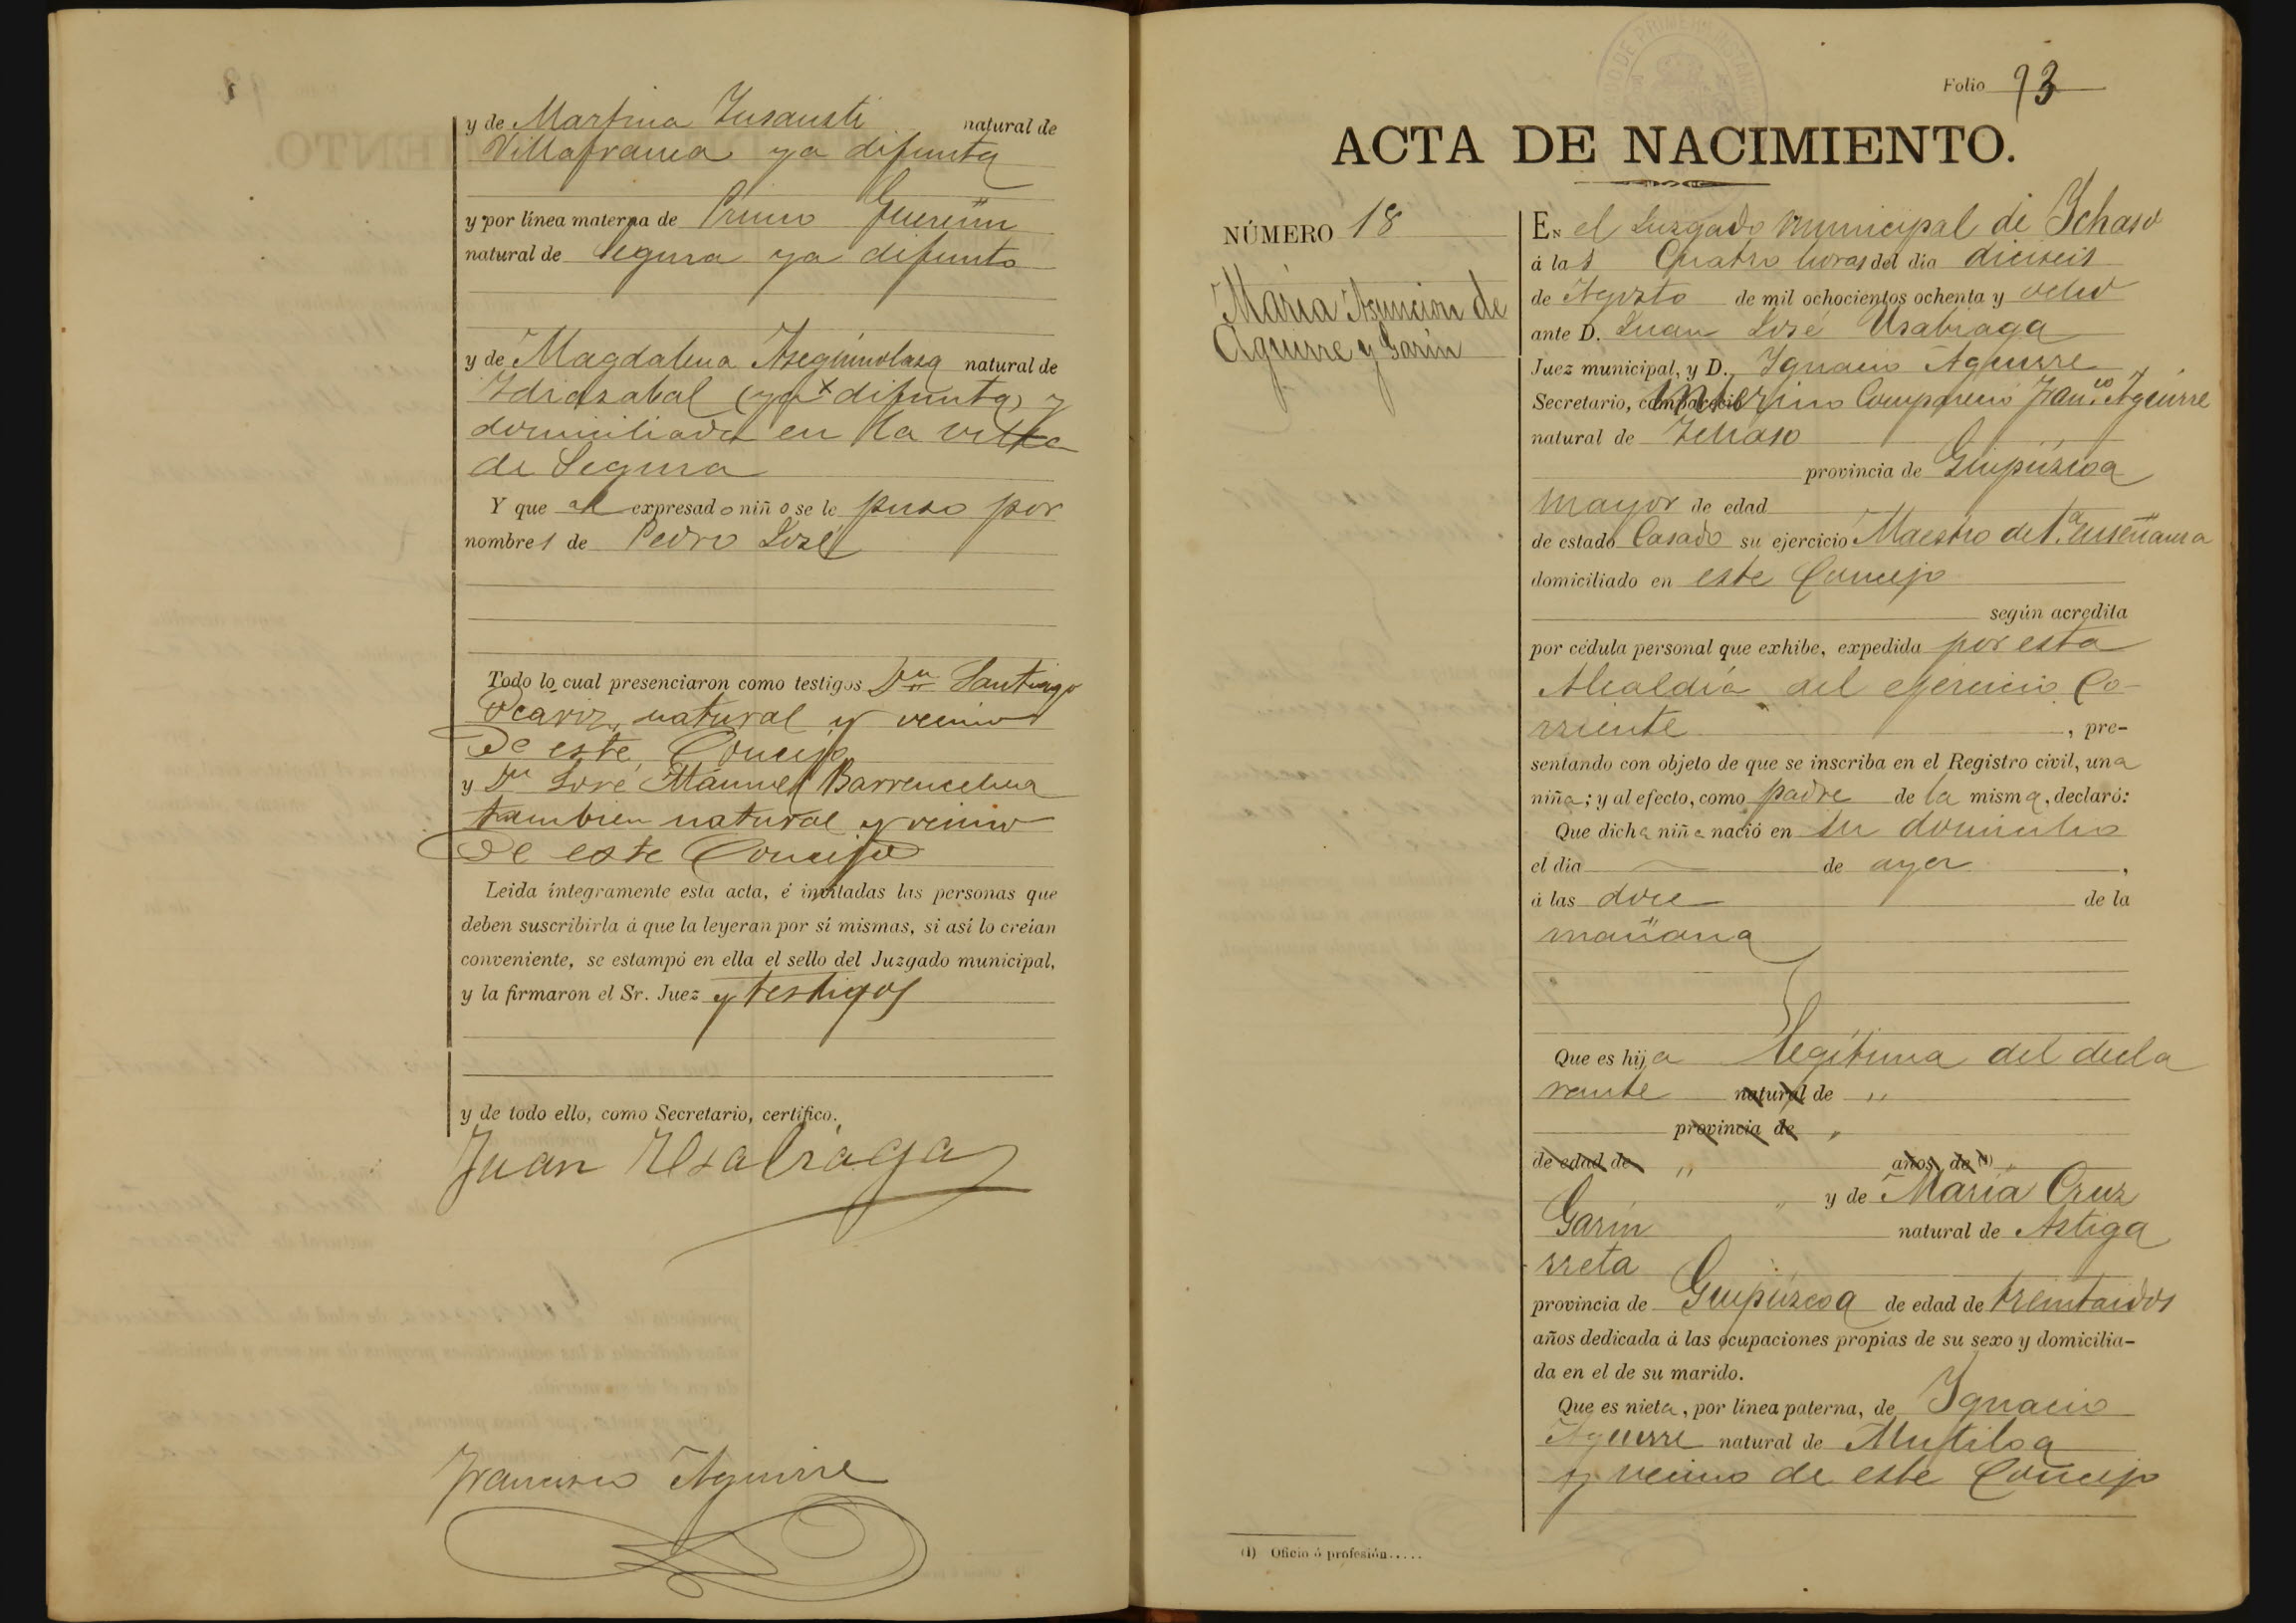 y de Martina Insausti natural de
Villafranca ya difunta
y por línea materna de Primo Guereñu
natural de Segura ya difunto
y de Magdalena Aseguinolasa natural de
Idiazabal (ya difunta) y
domiciliada en la villa
de Segura
Y que al expresado niño se le puso por
nombres de Pedro José
Todo lo cual presenciaron como testigos Dn Santiago
Ocariz, natural y vecino
de este Concejo
y Dn José Manuel Barrenechea
tambien natural y vecino
de este Concejo
Leida íntegramente esta acta, é invitadas las personas que
deben suscribirla á que la leyeran por sí mismas, si así lo creían
conveniente, se estampó en ella el sello del Juzgado municipal,
y la firmaron el Sr. Juez y testigos
y de todo ello, como Secretario, certifico.
Juan Usabiaga
Francisco Aguirre
Folio 93
ACTA DE NACIMIENTO.
NÚMERO 18
Maria Asuncion de
Aguirre y Garin
En el Juzgado municipal de Ychaso
á las Cuatro horas del dia dieciseis
de Agosto de mil ochocientos ochenta y ocho
ante D. Juan José Usabiaga
Juez municipal, y D. Ignacio Aguirre
Secretario, interino Compareció Fran.co Aguirre
natural de Ichaso
provincia de Guipúzcoa
mayor de edad
de estado Casado su ejercicio Maestro de 1.a enseñanza
domiciliado en este Concejo
según acredita
por cédula personal que exhibe, expedida por esta
Alcaldía del ejercicio Co-
rriente, pre-
sentando con objeto de que se inscriba en el Registro civil, una
niña; y al efecto, como padre de la misma, declaró:
Que dicha niña nació en su domicilio
el día de ayer,
á las doce de la
mañana
Que es hija legítima del decla
rante natural de "
provincia de "
de edad de " años, de (1) "
" y de Maria Cruz
Garin natural de Astiga
rreta
provincia de Guipúzcoa de edad de treintaidos
años dedicada á las ocupaciones propias de su sexo y domicilia-
da en el de su marido.
Que es nieta, por línea paterna, de Ignacio
Aguirre natural de Mutiloa
y vecino de este Concejo
(1) Oficio ó profesión.....